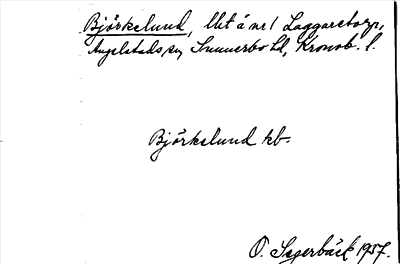 Björkelund, lht å nr 1 Laggaretorp,
Angelstads sn, Sunnerbo hd, Kronob. l.
Björkelund kb.
O. Sagerbäck 1957.